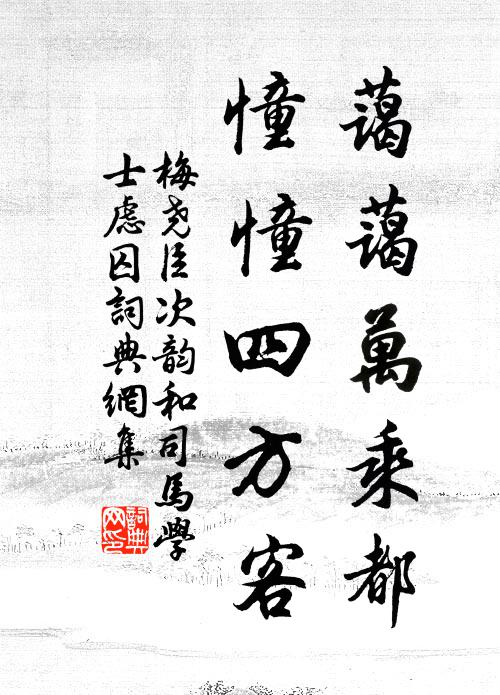 藹藹萬乘都
憧憧四方客
梅堯臣次韵和司馬學
士慮囚詞典網集
詞典
网印